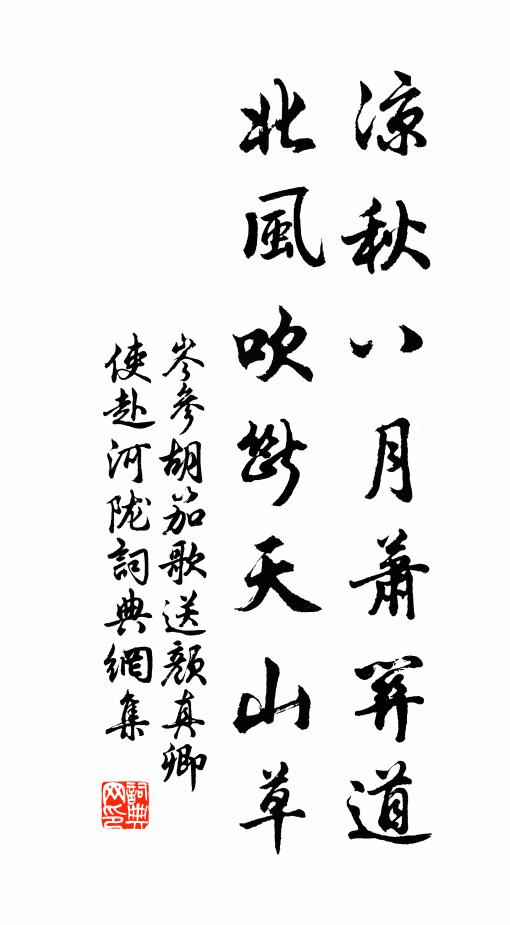 涼秋八月蕭關道
北風吹斷天山草
岑參胡笳歌送顏真卿
使赴河陇詞典網集
詞典网印